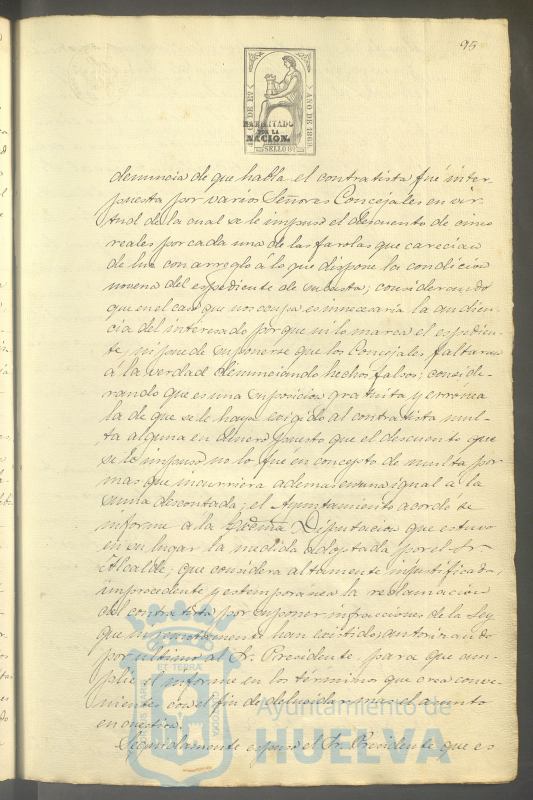 95
AÑO DE 1869
HABILITADO
POR LA
NACION.
SELLO 9º
denuncia de que habla el contratista fué inter-
puesta por varios Señores Concejales en vir-
tud de la cual se le impuso el descuento de cinco
reales por cada una de las farolas que carecian
de luz con arreglo á lo que dispone la condicion
novena del espediente de subasta; considerando
que en el caso que nos ocupa es innecesaria la audien-
cia del interesado por que ni lo marca el espedien-
te, ni puede suponerse que los Concejales faltaran
a la verdad denunciando hechos falsos; conside-
rando que es una suposicion gratuita y erronea
la de que se le haya exigido al contratista mul-
ta alguna en dinero puesto que el descuento que
se le impuso no lo fué en concepto de multa por
mas que incurriera ademas en una igual a la
suma descontada; el Ayuntamiento acordó se
informe a la Diputacion que estuvo
en su lugar la medida adoptada por el Sr.
Alcalde, que considera altamente injustificada
improcedente y estemporánea la reclamacion
del contratista por suponer infracciones de la Ley
que ni remotamente han existido, autorizando
por ultimo al Sr. Presidente para que am-
plie el informe en los terminos que crea conve-
nientes con el fin de dilucidar mas el asunto
en cuestion.
Seguidamente espuso el Sr. Presidente que es
Ayuntamiento de
HUELVA